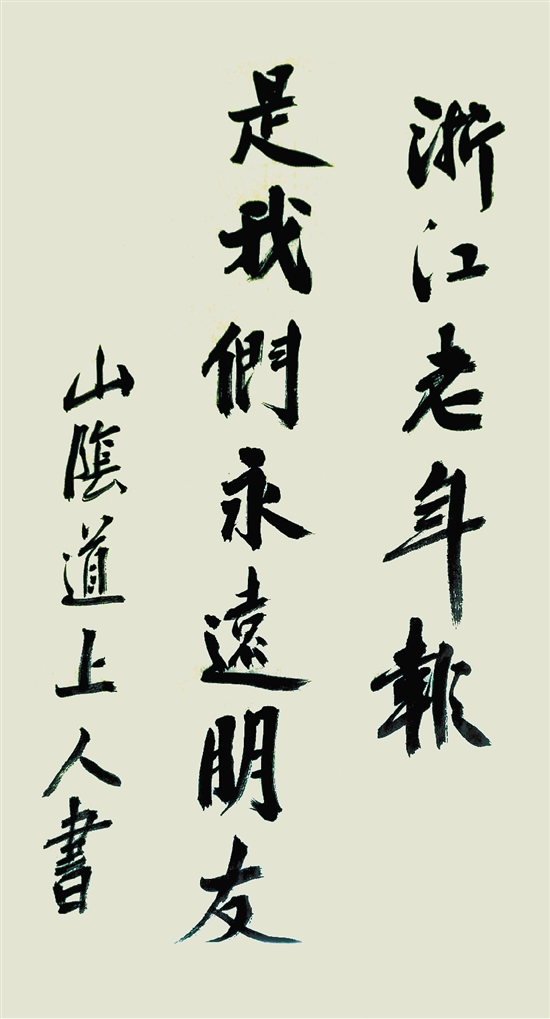 浙江老年報
是我們永遠朋友
山陰道上人書